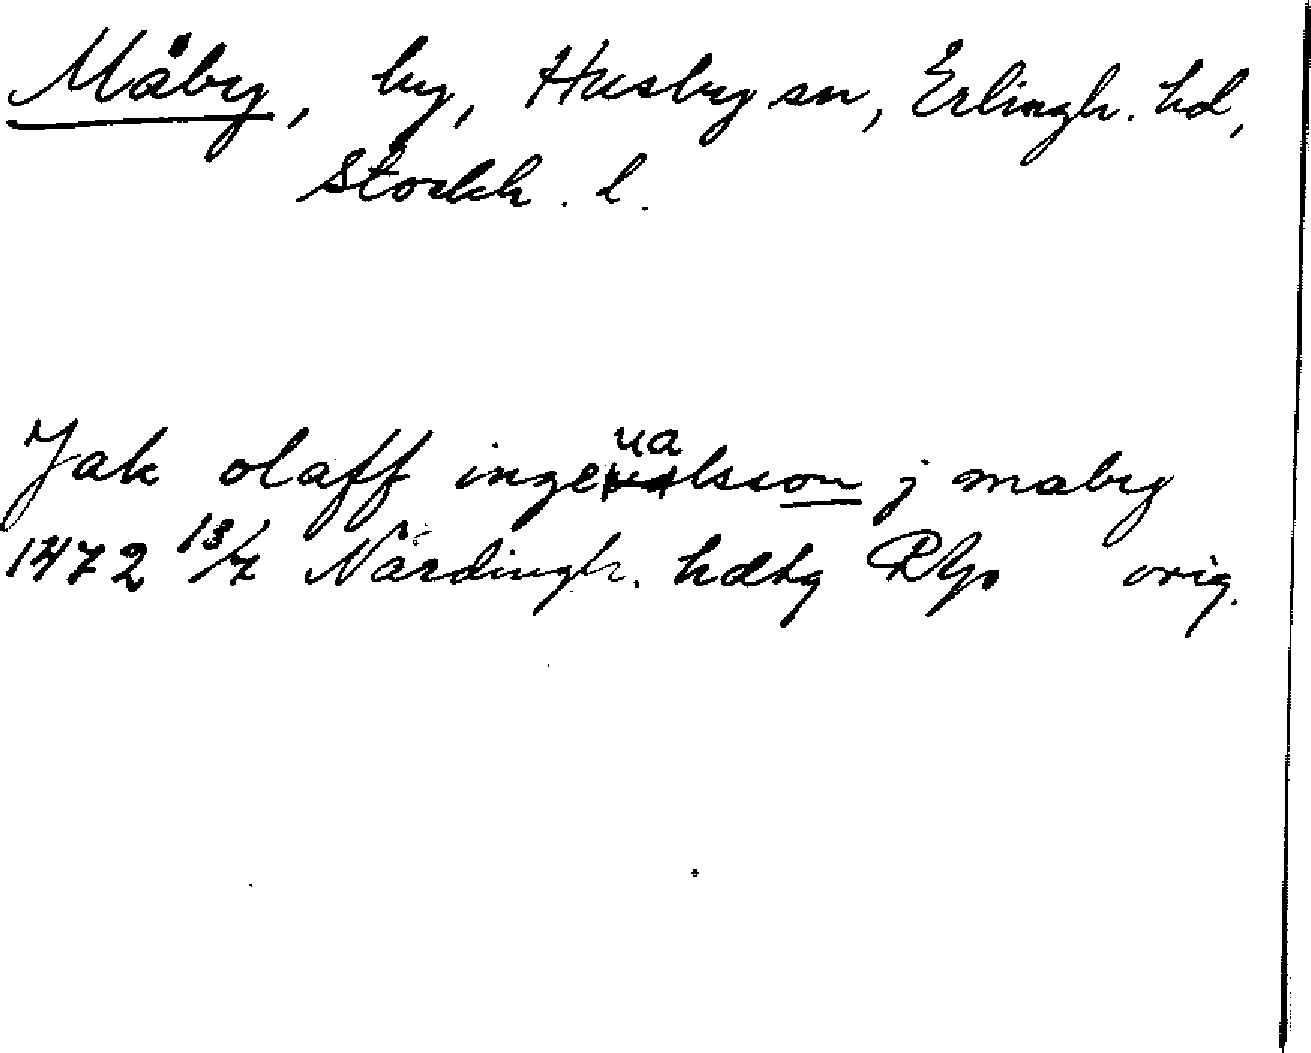 Måby, by, Husby sn, Erlingh. hd,
Stockh. l.
Jak olaff ingeualsson j maby
1472 13/7 Närdingh. hdtg RGp orig.